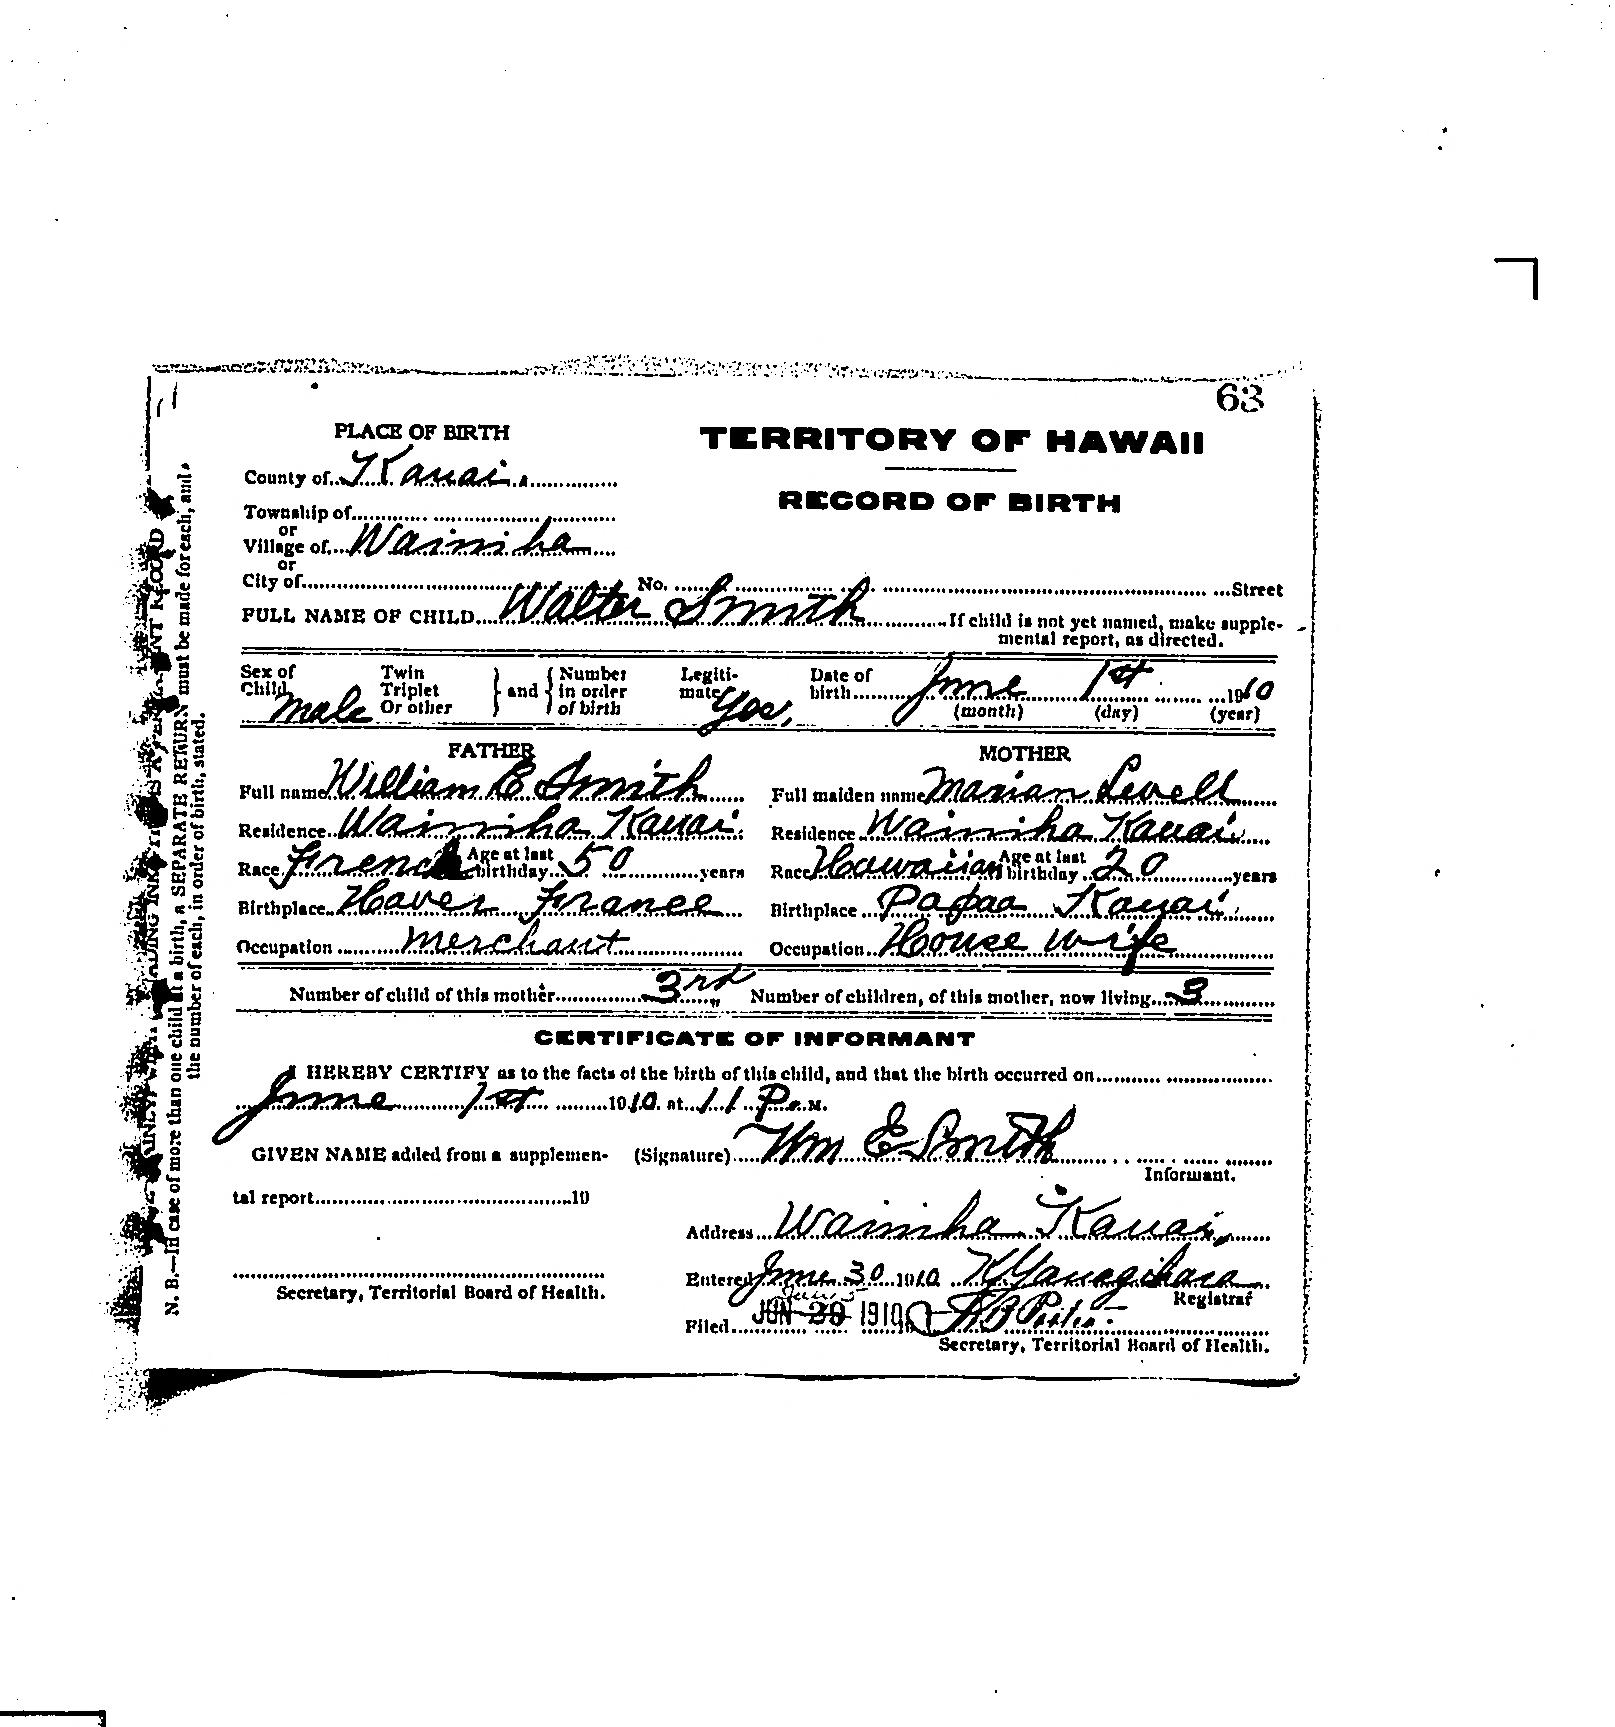 63
PLACE OF BIRTH
TERRITORY OF HAWAII
County of Kauai.
RECORD OF BIRTH
Township of
or
Village of Wainiha
or
City of No. Street
FULL NAME OF CHILD Walter Smith If child is not yet named, make supple-
mental report, as directed.
Sex of Child male
Twin Triplet Or other } and { Number in order of birth
Legiti- mate Yes,
Date of birth June 1st 1910
(month) (day) (year)
FATHER
MOTHER
Full name William E Smith
Full maiden name Marian Levell
Residence Wainiha Kauai.
Residence Wainiha Kauai.
Race French Age at last birthday 50 years
Race Hawaiian Age at last birthday 20 years
Birthplace Haver France
Birthplace Papaa Kauai.
Occupation merchant
Occupation House wife
Number of child of this mother 3rd Number of children, of this mother, now living 3
CERTIFICATE OF INFORMANT
I HEREBY CERTIFY as to the facts of the birth of this child, and that the birth occurred on
June 1st 1910 at 11 P. M.
GIVEN NAME added from a supplemen- (Signature) Wm E Smith
Informant.
tal report 10
Address Wainiha Kauai,
Entered June 30 1910 K Yanagihara
Secretary, Territorial Board of Health.
Registrar
Filed JUN 1910
Secretary, Territorial Board of Health.
N. B.—In case of more than one child at a birth, a SEPARATE RETURN must be made for each, and
the number of each, in order of birth, stated.